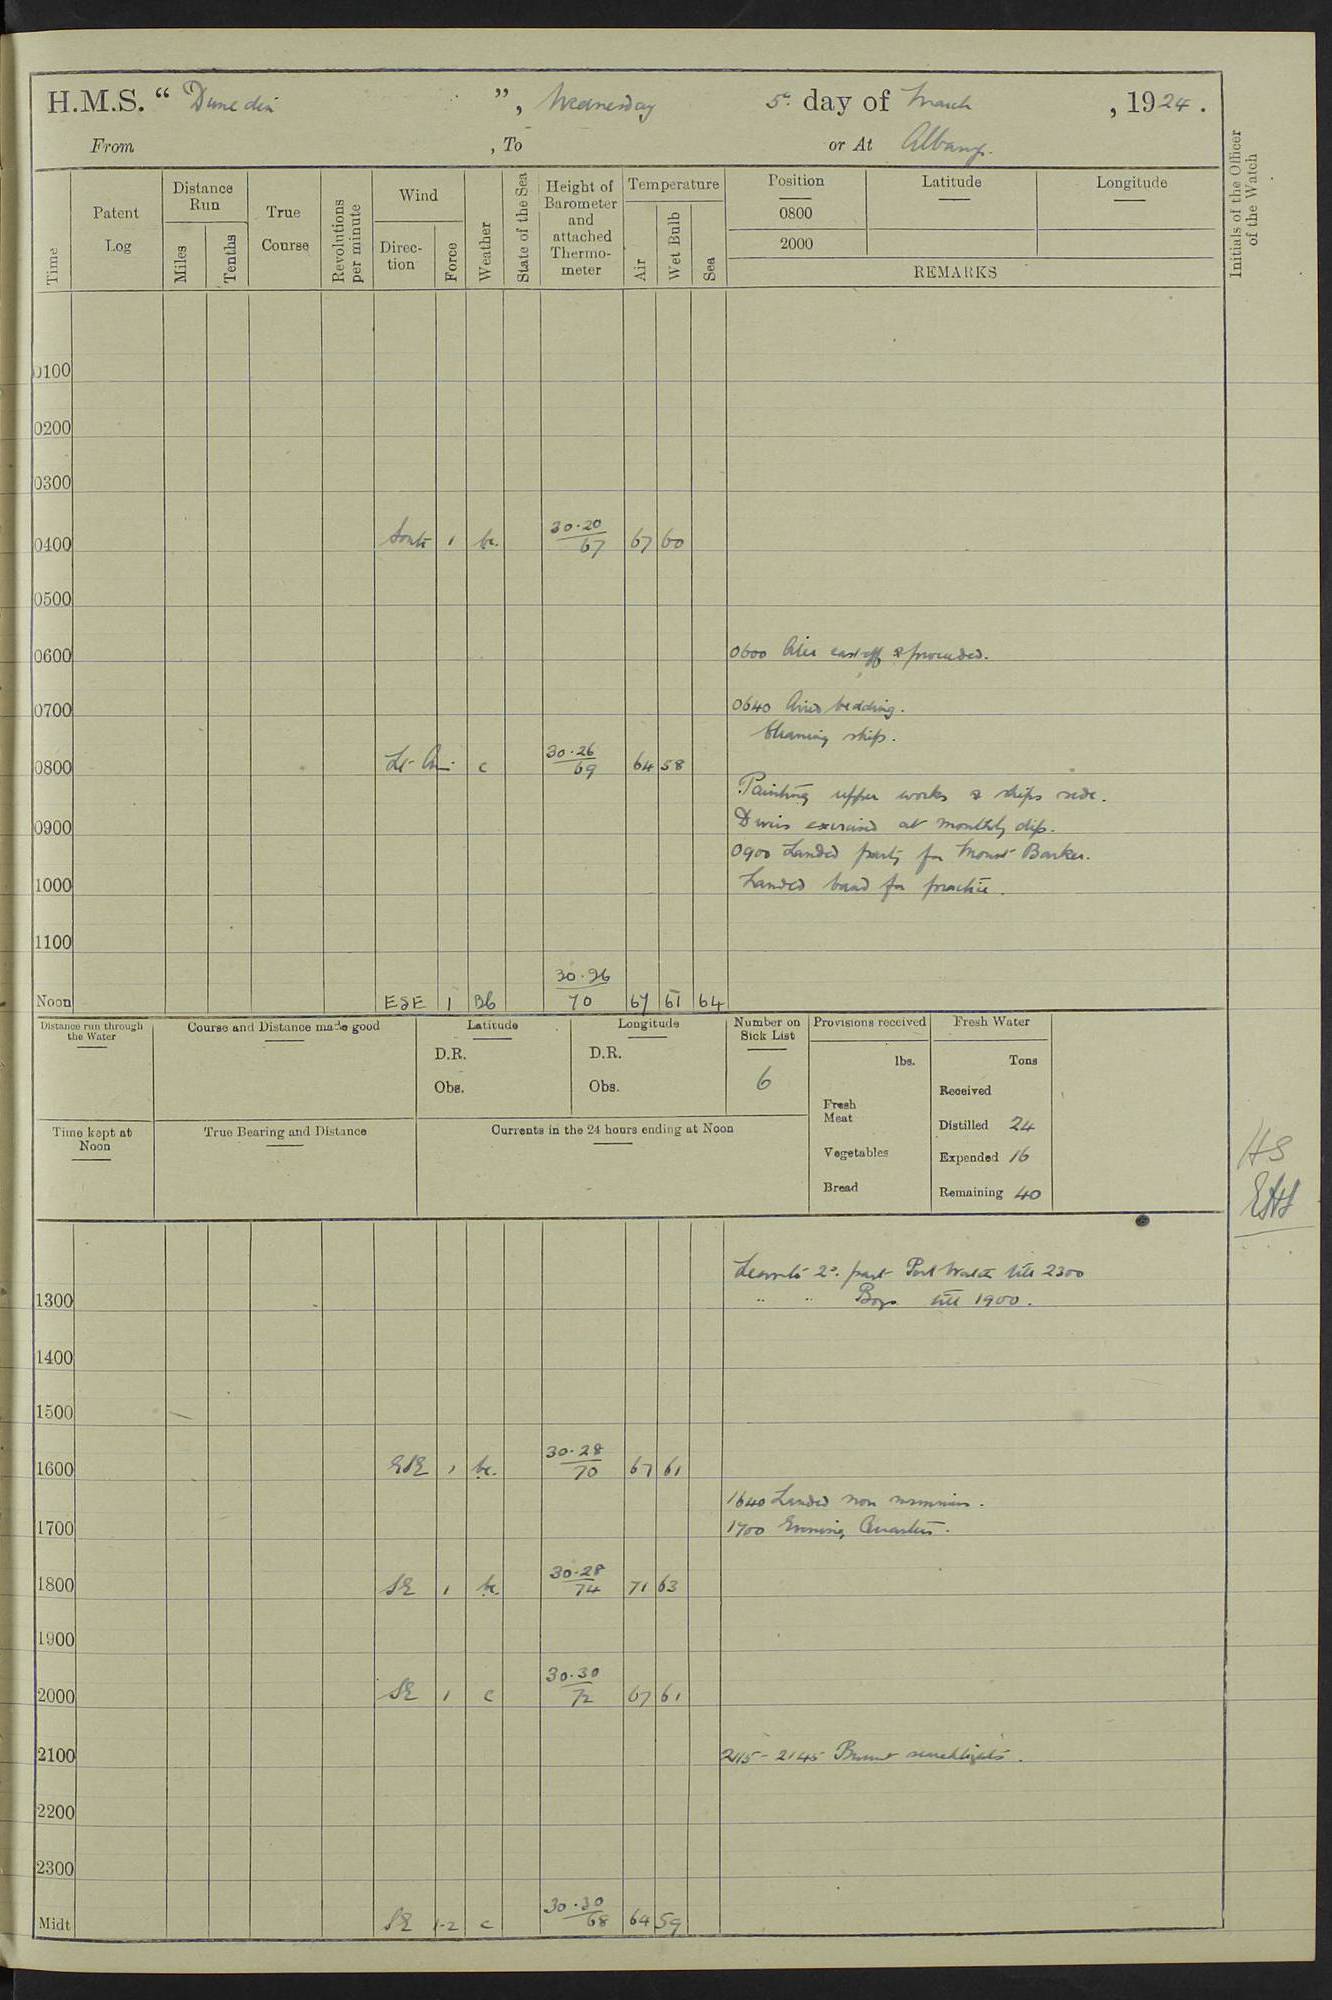 H.M.S. “ Dunedin ”, Wednesday 5th day of March, 1924.
From , To or At Albany.
Time
Patent Log
Distance Run
Miles
Tenths
True Course
Revolutions per minute
Wind
Direction
Force
Weather
State of the Sea
Height of Barometer and attached Thermometer
Temperature
Air
Wet Bulb
Sea
Position
0800
2000
Latitude
Longitude
REMARKS
Initials of the Officer of the Watch
0100
0200
0300
0400 South 1 bc. 30.20/67 67 60
0500
0600
0600 Oiler cast off & proceeded.
0700
0640 Aired bedding.
Cleaning ship.
0800 Lt. Airs c 30.26/69 64 58
Painting upper works & ships side.
0900
Divers exercised at monthly dip.
0900 Landed party for Mount Barker.
1000
Landed band for practice.
1100
Noon ESE 1 Bc 30.26/70 67 61 64
Distance run through the Water
Course and Distance made good
Latitude
D.R.
Obs.
Longitude
D.R.
Obs.
Number on Sick List
6
Provisions received
lbs.
Fresh Meat
Vegetables
Bread
Fresh Water
Tons
Received
Distilled 24
Expended 16
Remaining 40
Time kept at Noon
True Bearing and Distance
Currents in the 24 hours ending at Noon
HS
Leave to 2nd. part Port Watch till 2300
1300
" " Boys till 1900.
1400
1500
1600 ESE 1 bc. 30.28/70 67 61
1640 Landed
1700
1700 Evening Quarters.
1800 SE 1 bc. 30.28/74 71 63
1900
2000 SE 1 c 30.30/72 67 61
2100
2115 - 2145 Burnt searchlights.
2200
2300
Midt SE 1-2 c 30.30/68 64 59